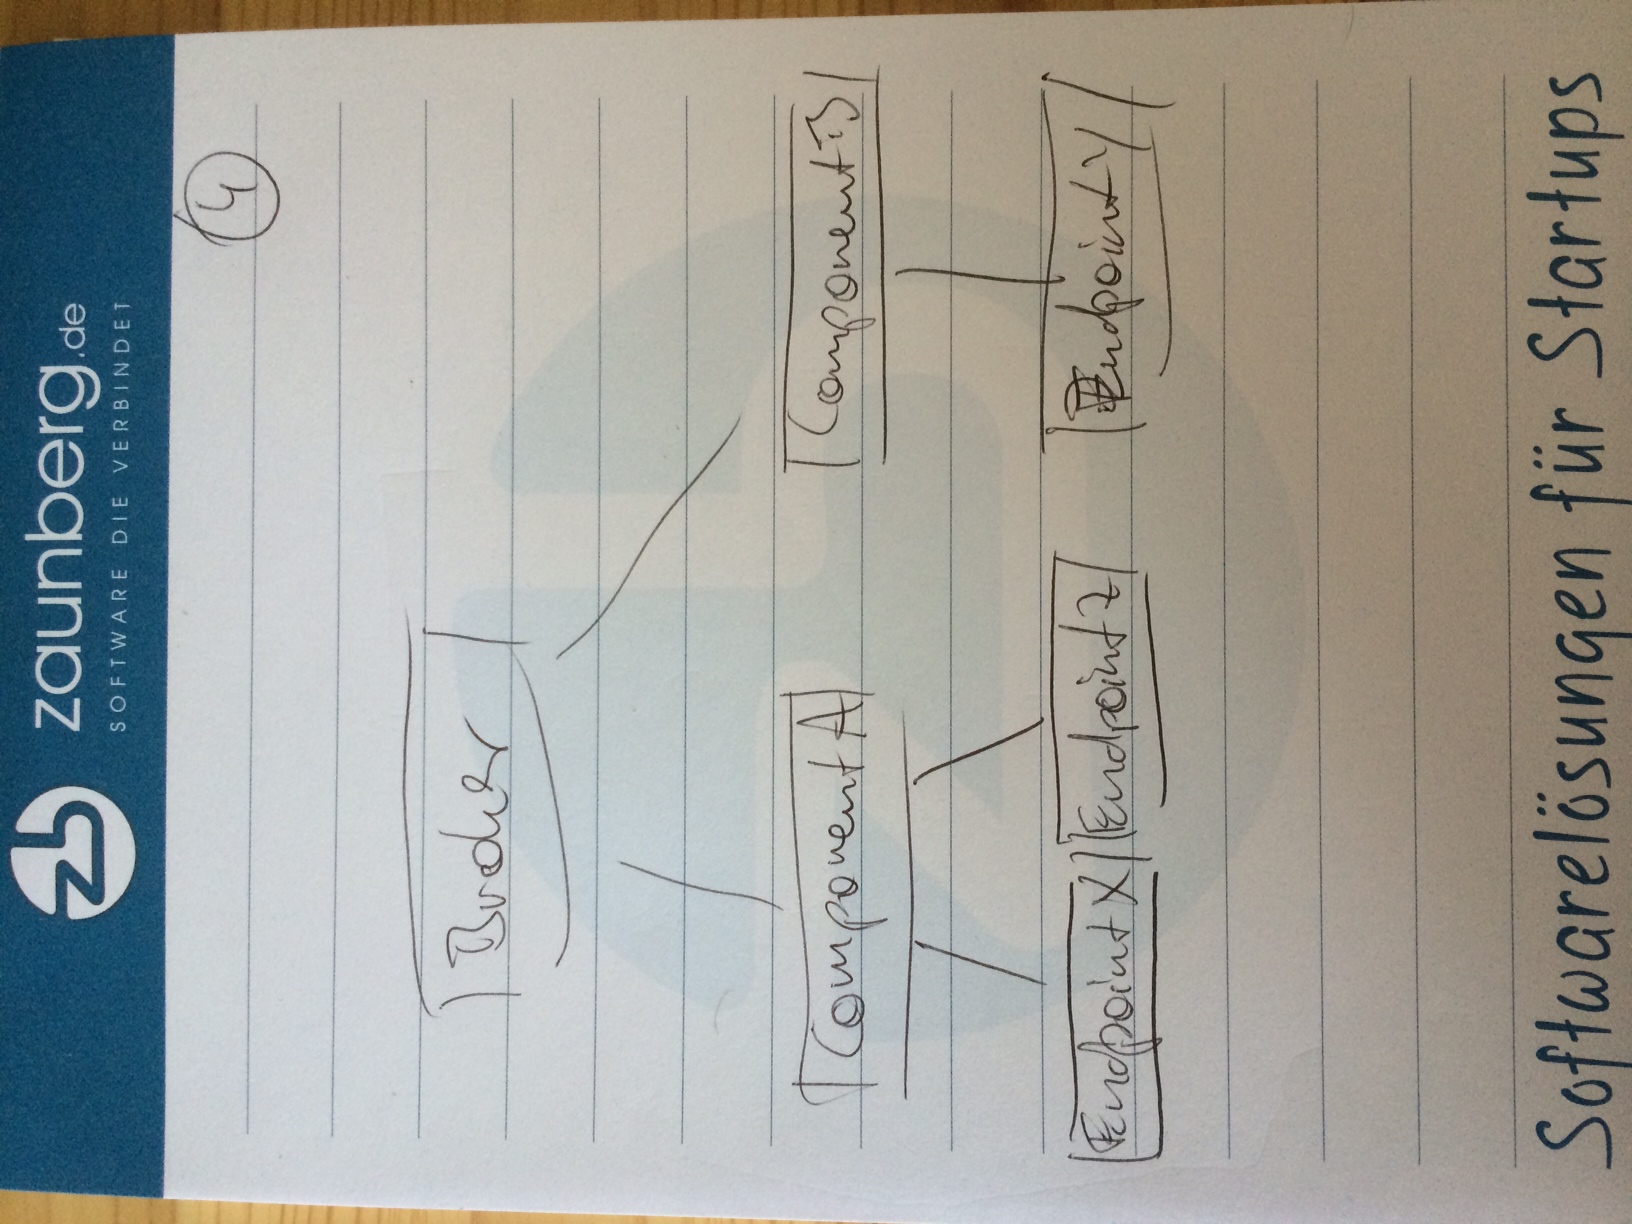 zaunberg.de
SOFTWARE DIE VERBINDET
4
Broker
Component A
Component B
Endpoint X
Endpoint Z
Endpoint Y
Softwarelösungen für Startups